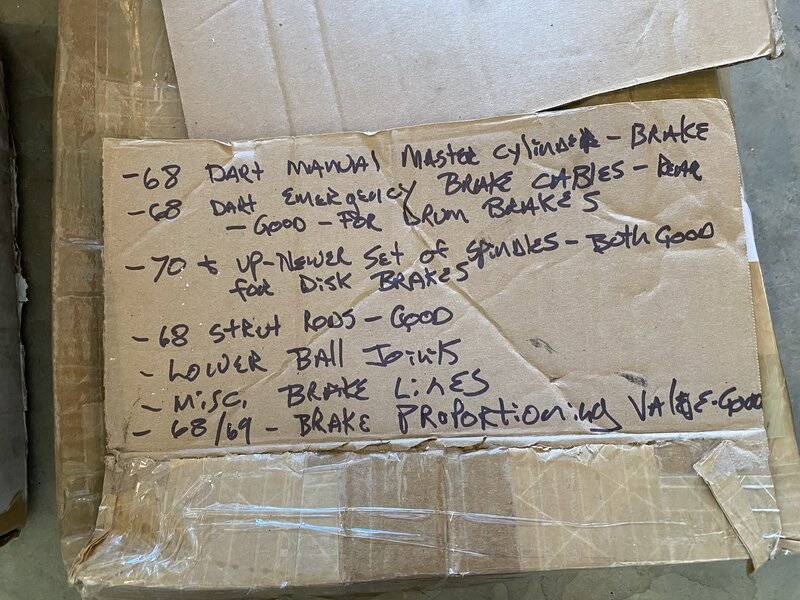 -68 DART MANUAL MASTER CYLINDER - BRAKE
-68 DART EMERGENCY BRAKE CABLES - REAR
- GOOD - FOR DRUM BRAKES
-70 + UP-NEWER SET OF SPINDLES - BOTH GOOD
for DISK BRAKES
-68 STRUT RODS - GOOD
- LOWER BALL JOINTS
- MISC. BRAKE LINES
- 68/69 - BRAKE PROPORTIONING VALVE-GOOD